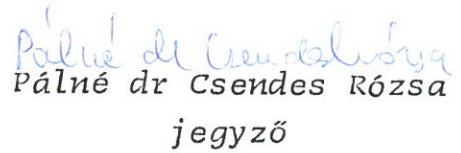 Pálné dr Csendes Rózsa
Pálné dr Csendes Rózsa
jegyző